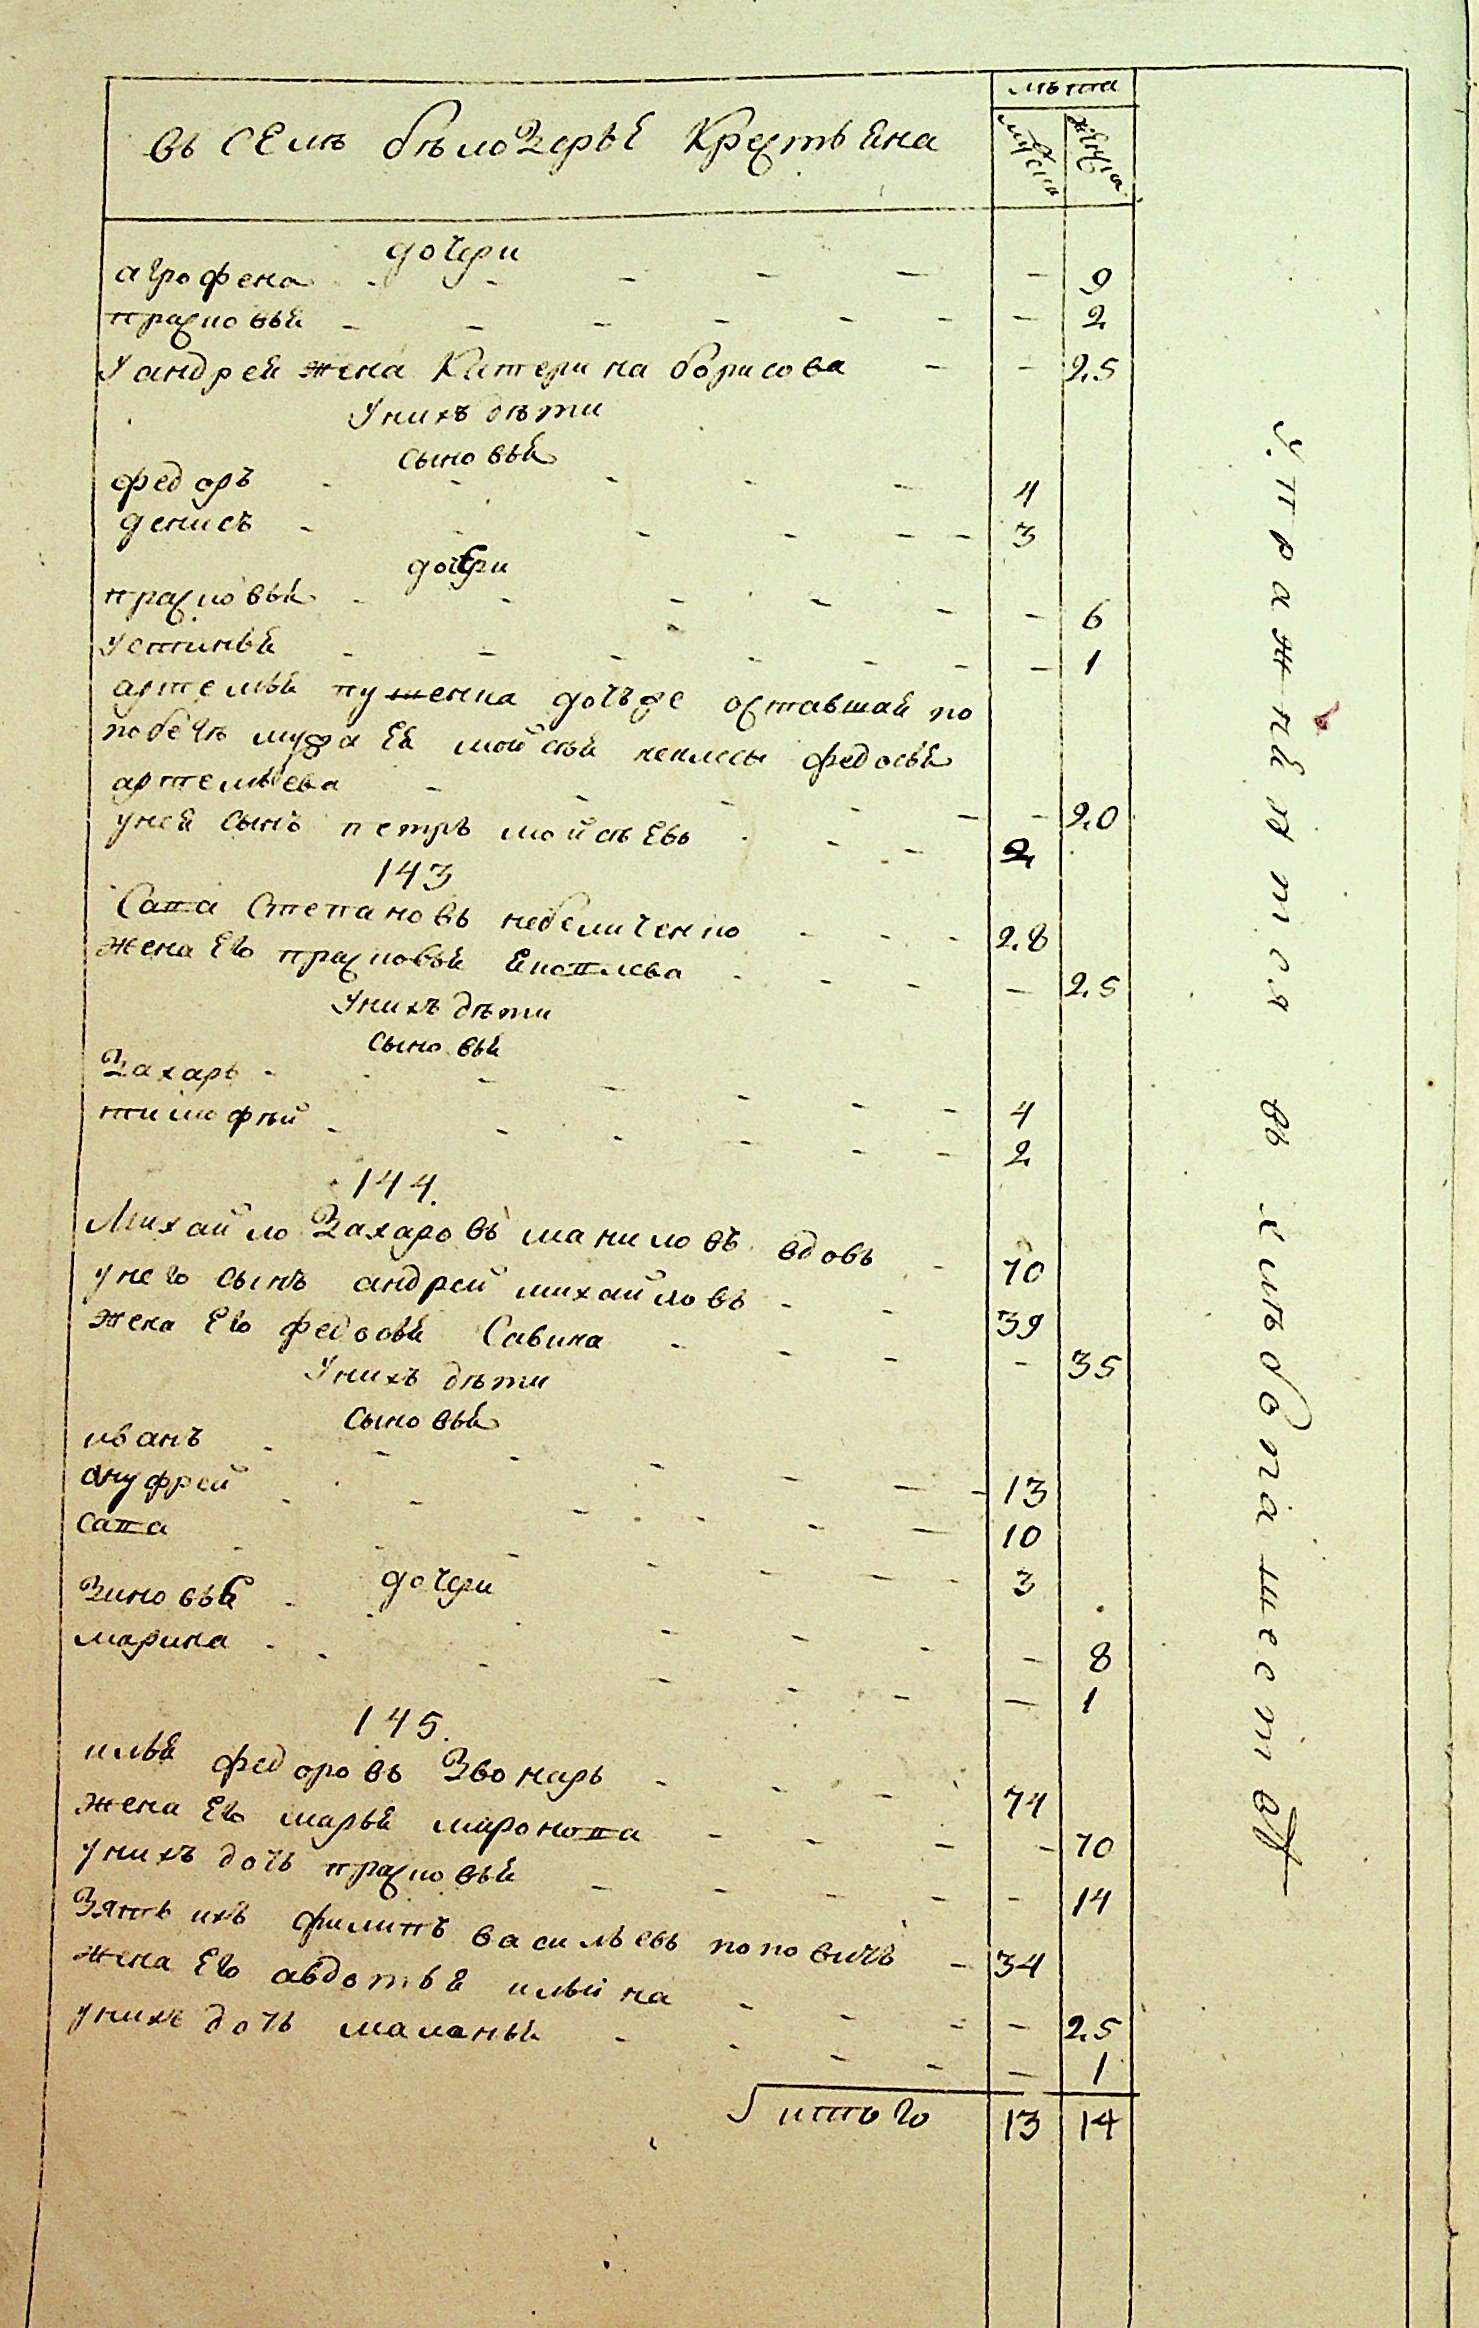 въ СЕлѣ бѣлоЗерьѣ Крестьяна
лѣта
мужеска
женска
дочери
агрофена 9
прасковья 2
У андрея жена Катерина борисова 25
Унихъ дѣти
сыновья
федоръ 4
денисъ 3
дочери
прасковья 6
устинья 1
артемья пушенка дочь же оставшая по
побегѣ мужа Ея мойсея федосья
артемьева 20
унея сынъ петръ мойсѣевъ 2
143
Сава Степановъ невеличенко 28
жена Его прасковья яковлева 25
Унихъ дѣти
сыновья
Захаръ 4
тимофѣй 2
144.
Михайло Захаровъ маниловъ вдовъ 70
унего сынъ андрей михайловъ 39
жена Его федосья Савина 35
Унихъ дѣти
сыновья
иванъ 13
ануфрей 10
сава 3
дочери
Зиновья 8
марина 1
145.
илья федоровъ Звонарь 74
жена Его марья миронова 70
унихъ дочь прасковья 14
Зять ихъ филипъ васильевъ поповичъ 34
жена Его авдотья ильина 25
унихъ дочь маланья 1
итого 13 14
упражняется въ хлѣбопашествѣ